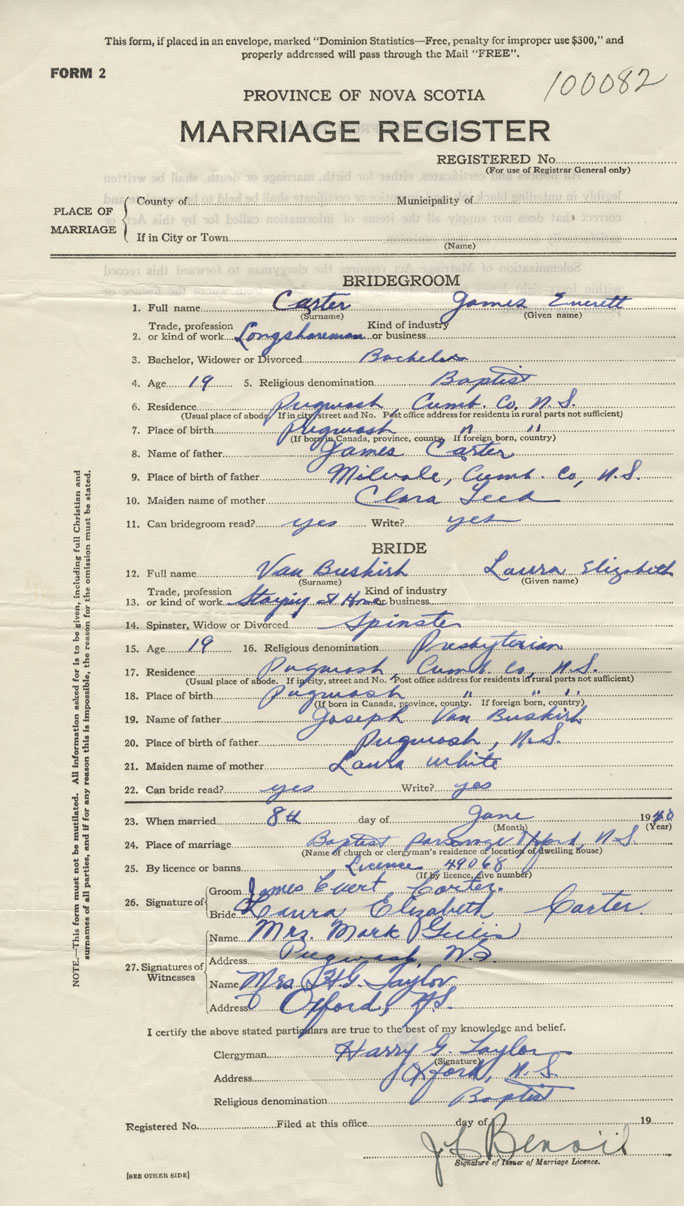 This form, if placed in an envelope, marked "Dominion Statistics—Free, penalty for improper use $300," and
properly addressed will pass through the Mail "FREE".
FORM 2
100082
PROVINCE OF NOVA SCOTIA
MARRIAGE REGISTER
REGISTERED No.
(For use of Registrar General only)
PLACE OF MARRIAGE
County of Municipality of
If in City or Town
(Name)
BRIDEGROOM
1. Full name Carter James Everett
(Surname) (Given name)
2. Trade, profession or kind of work Longshoreman Kind of industry or business
3. Bachelor, Widower or Divorced Bachelor
4. Age 19 5. Religious denomination Baptist
6. Residence Pugwash, Cumb. Co. N.S.
(Usual place of abode. If in city, street and No. Post office address for residents in rural parts not sufficient)
7. Place of birth Pugwash " "
(If born in Canada, province, county. If foreign born, country)
8. Name of father James Carter
9. Place of birth of father Milvale, Cumb. Co, N.S.
10. Maiden name of mother Clara Teed
11. Can bridegroom read? yes Write? yes
BRIDE
12. Full name Van Buskirk Laura Elizabeth
(Surname) (Given name)
13. Trade, profession or kind of work Staying at Home Kind of industry or business
14. Spinster, Widow or Divorced Spinster
15. Age 19 16. Religious denomination Presbyterian
17. Residence Pugwash Cumb. Co, N.S.
(Usual place of abode. If in city, street and No. Post office address for residents in rural parts not sufficient)
18. Place of birth Pugwash " " "
(If born in Canada, province, county. If foreign born, country)
19. Name of father Joseph Van Buskirk
20. Place of birth of father Pugwash, N.S.
21. Maiden name of mother Laura White
22. Can bride read? yes Write? yes
23. When married 8th day of June 1940
(Month) (Year)
24. Place of marriage Baptist Parsonage Oxford, N.S.
(Name of church or clergyman's residence or location of dwelling house)
25. By licence or banns Licence 49068
(If by licence, give number)
26. Signature of
Groom James Evert Carter.
Bride Laura Elizabeth Carter.
27. Signatures of Witnesses
Name Mrs. Mark Gillis
Address Pugwash, NS.
Name Mrs H.G. Taylor
Address Oxford, N.S.
I certify the above stated particulars are true to the best of my knowledge and belief.
Clergyman Harry G. Taylor
(Signature)
Address Oxford, N.S.
Religious denomination Baptist
Registered No. Filed at this office day of 19
Benoit
Signature of Issuer of Marriage Licence.
[SEE OTHER SIDE]
NOTE.—This form must not be mutilated. All information asked for is to be given, including full Christian and
surnames of all parties, and if for any reason this is impossible, the reason for the omission must be stated.